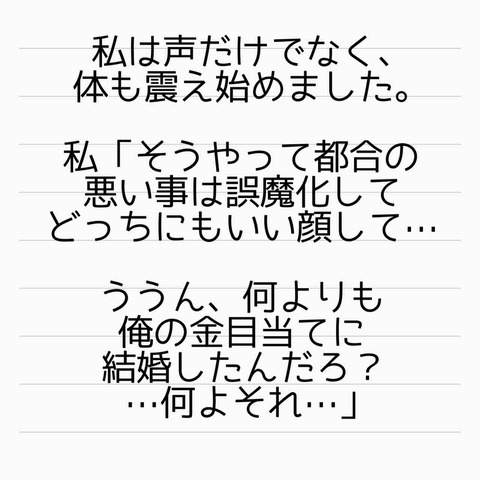 私は声だけでなく、
体も震え始めました。
私「そうやって都合の
悪い事は誤魔化して
どっちにもいい顔して…
ううん、何よりも
俺の金目当てに
結婚したんだろ？
…何よそれ…」